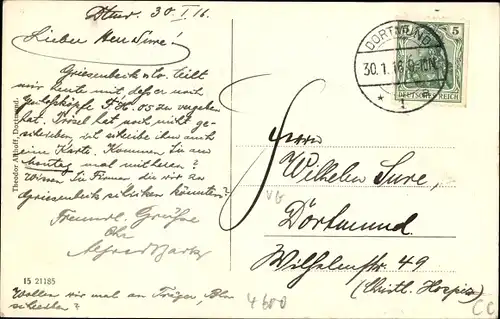 Dtmd. 30. I. 16
Lieber Herr Sure!
Griesenbeck u. Co. teilt
mir heute mit, daß er noch
zu vergeben
hat. hat noch nicht ge-
schrieben, ich schreibe ihm auch
eine Karte. Kommen Sie am
Montag mal mit herein?
Wissen Sie Firmen die wir an
Griesenbeck schicken könnten?
Freundl. Grüße
Ihr
Alfred Bartz
Wollen wir mal an
schreiben?
Theodor Althoff, Dortmund.
15 21185
DORTMUND
30.1.16. 9-10N.
* 1 a
5
DEUTSCHES REICH
Herrn
Wilhelm Sure,
Dortmund
Wilhelmstr 49
(Christl. Hospiz)
VG
4600
CC